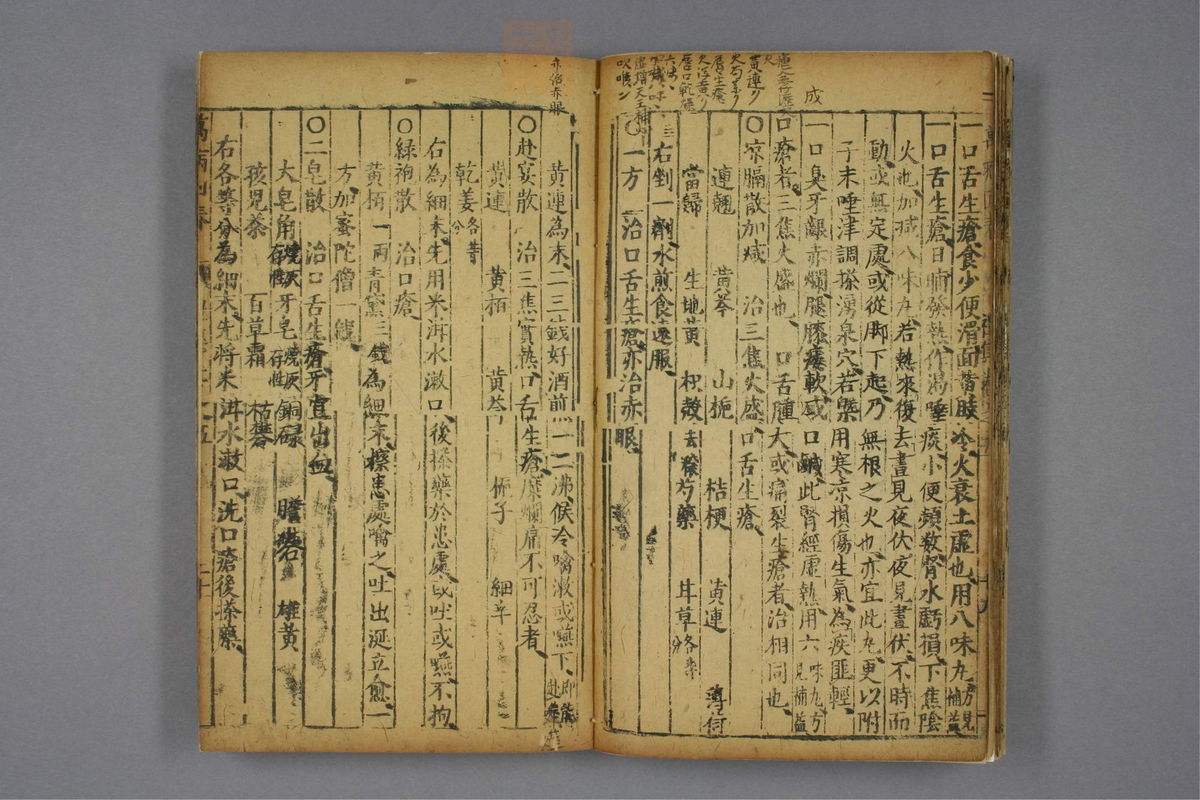 成
一口舌生瘡食少便滑面黃肢冷火衰土虛也用八味丸方見補益
一口舌生瘡日晡發熱作渴唾痰小便頻數腎水虧損下焦陰
火也加減八味丸若熱來復去晝見夜伏夜見晝伏不時而
動或無定處或從脚下起乃無根之火也亦宜此丸更以附
子末唾津調搽湧泉穴若槩用寒凉損傷生氣為疾匪輕
一口臭牙齦赤爛腿膝痿軟或口鹹此腎經虛熱用六味丸方見補益
口瘡者三焦火盛也 口舌腫大或痛裂生瘡者治相同也
〇凉膈散加減 治三焦火盛口舌生瘡
連翹 黃芩 山梔 桔梗 黃連 薄荷
當歸 生地黃 枳殼去穰 芍藥 甘草各等分
右剉一劑水煎食遠服
〇一方 治口舌生瘡亦治赤眼
亦治赤眼
黃連為末二三錢好酒煎一二沸候冷噙漱或嚥下即愈
〇赴宴散 治三焦實熱口舌生瘡糜爛痛不可忍者
黃連 黃栢 黃芩 梔子 細辛
乾姜各等分
右為細末先用米泔水漱口後搽藥於患處或吐或嚥不拘
〇綠袍散 治口瘡
黃栢一兩 青黛三錢為細末搽患處噙之吐出涎立愈一
方加蜜陀僧一錢
〇二皂散 治口舌生瘡牙宣出血
大皂角燒灰存性 牙皂燒灰存性 銅碌 膽礬 雄黃
孩兒茶 百草霜 枯礬
右各等分為細末先將米泔水漱口洗口瘡後搽藥